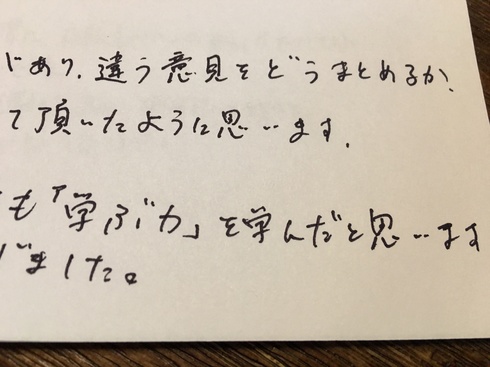 にあり、違う意見をどうまとめるか、
て頂いたように思います。
も「学ぶ力」を学んだと思います
ました。